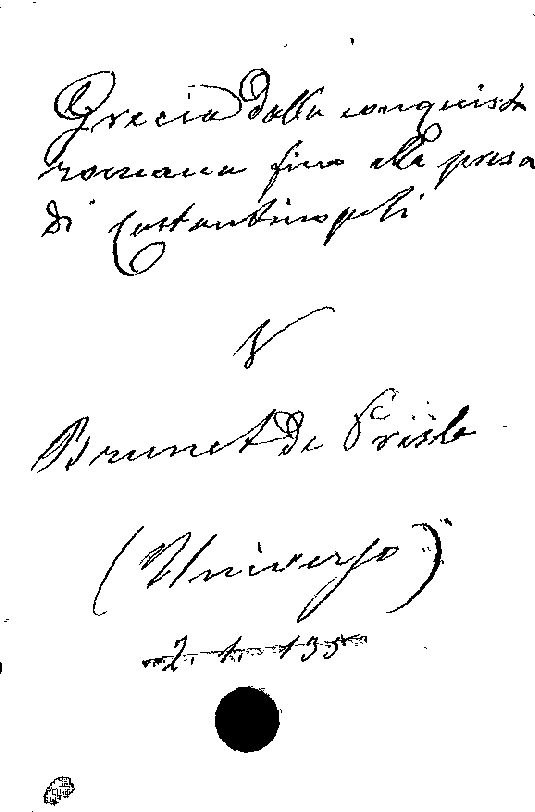 Grecia dalla conquista
romana fino alla presa
di Costantinopoli
V
Brunet de Presle
(Universo)
2. 1. 135